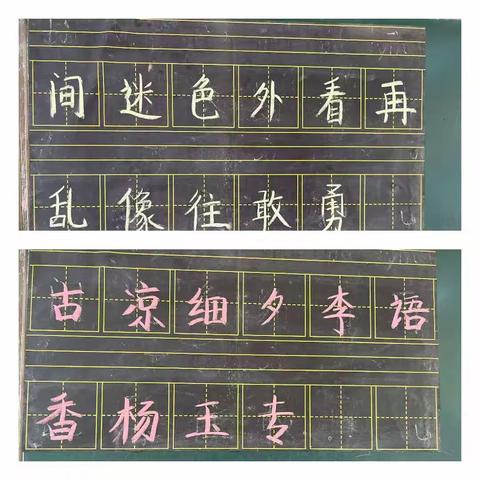 间迷色外看再
乱像往敢勇
古凉细夕李语
香杨玉专